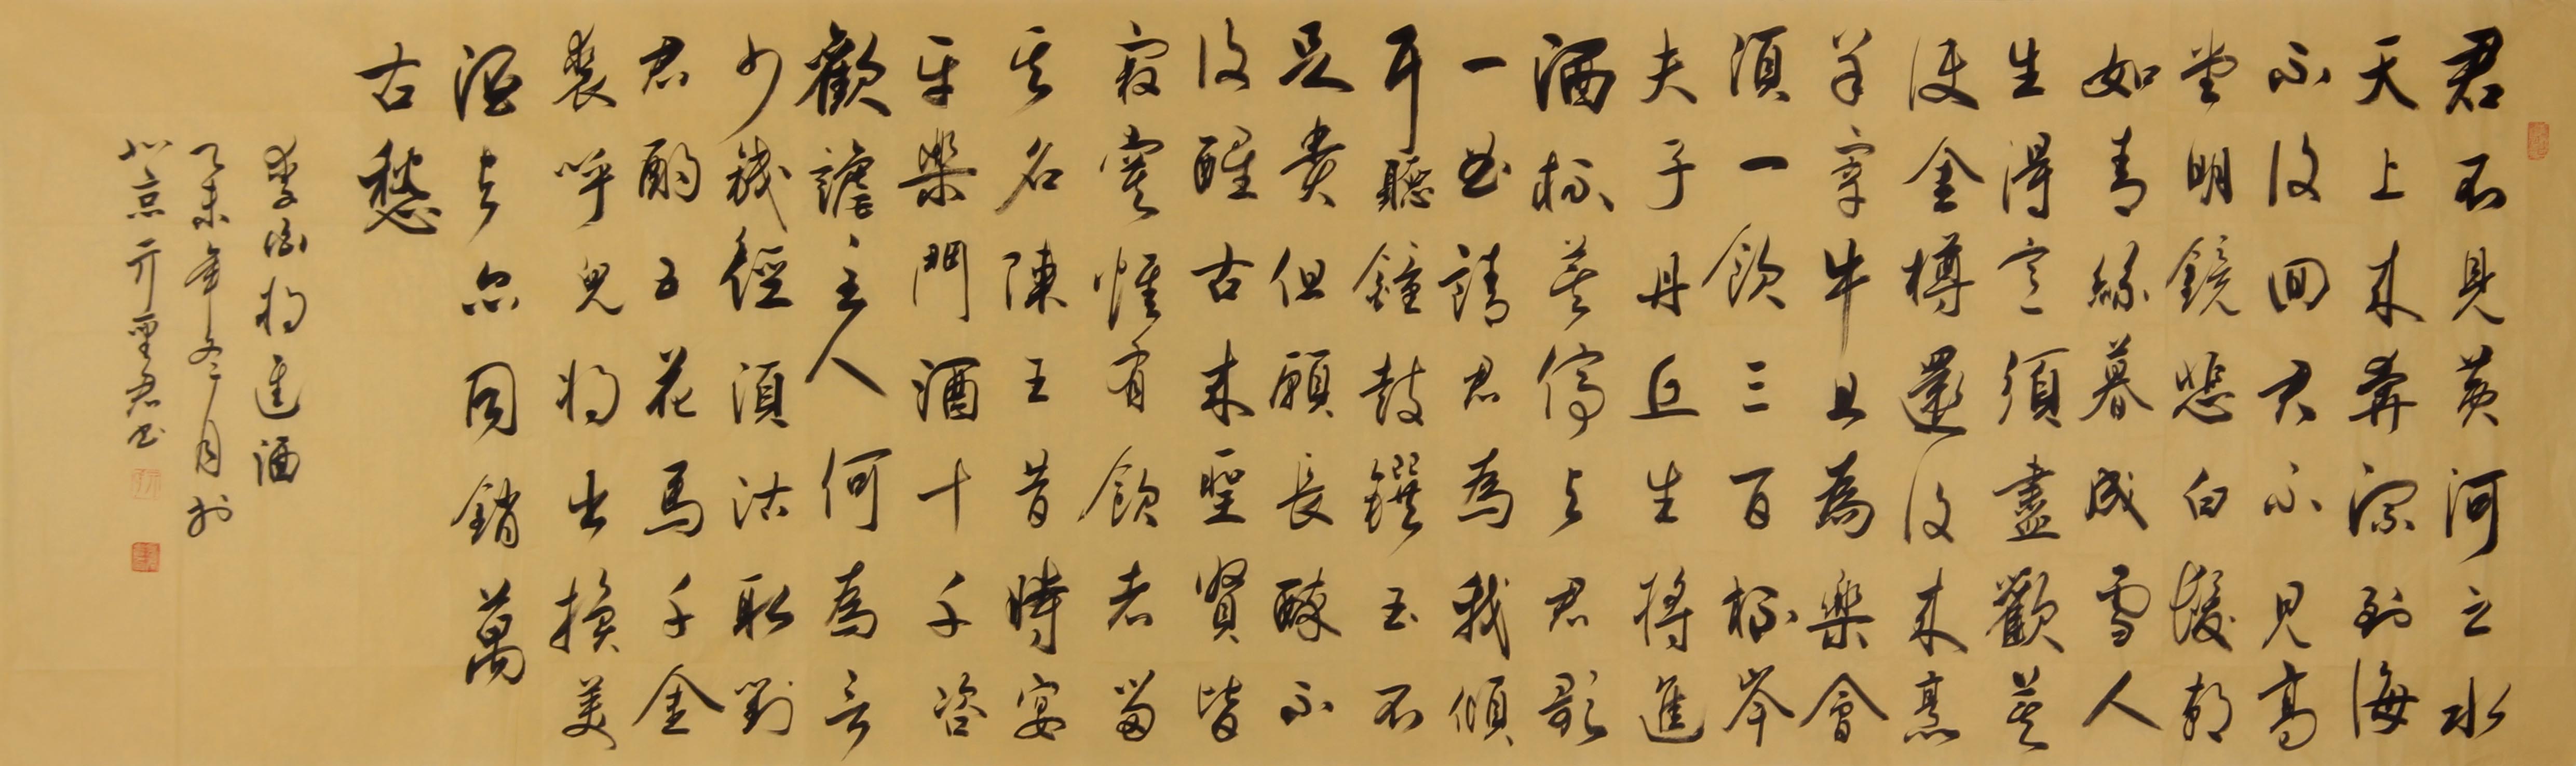 君不見黃河之水
天上来奔流到海
不復回君不見高
堂明鏡悲白髮朝
如青絲暮成雪人
生得意須盡歡莫
使金樽還復来烹
羊宰牛且為樂會
須一飲三百杯岑
夫子丹丘生將進
酒杯莫停与君歌
一曲請君為我傾
耳聽鐘鼓饌玉不
足貴但願長醉不
復醒古来聖賢皆
寂寞惟有飲者留
其名陳王昔時宴
平樂鬥酒十千恣
歡謔主人何為言
少錢徑須沽取對
君酌五花馬千金
裘呼兒将出換美
酒与尔同銷萬
古愁
李白将進酒
乙未年冬月於
北京亓聖君书